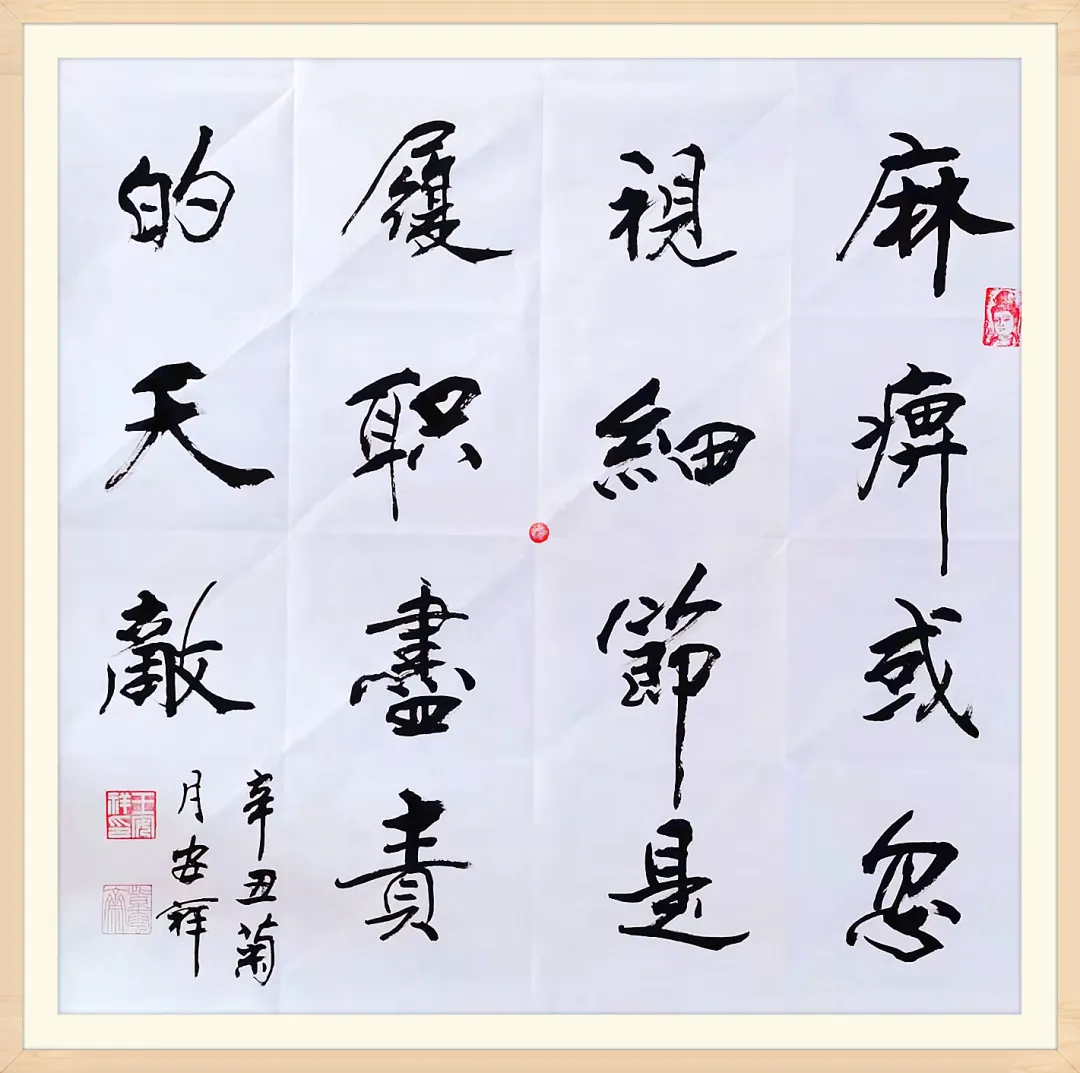 麻痹或忽
視細節是
履职盡責
的天敵
辛丑菊
月安祥
王安祥印